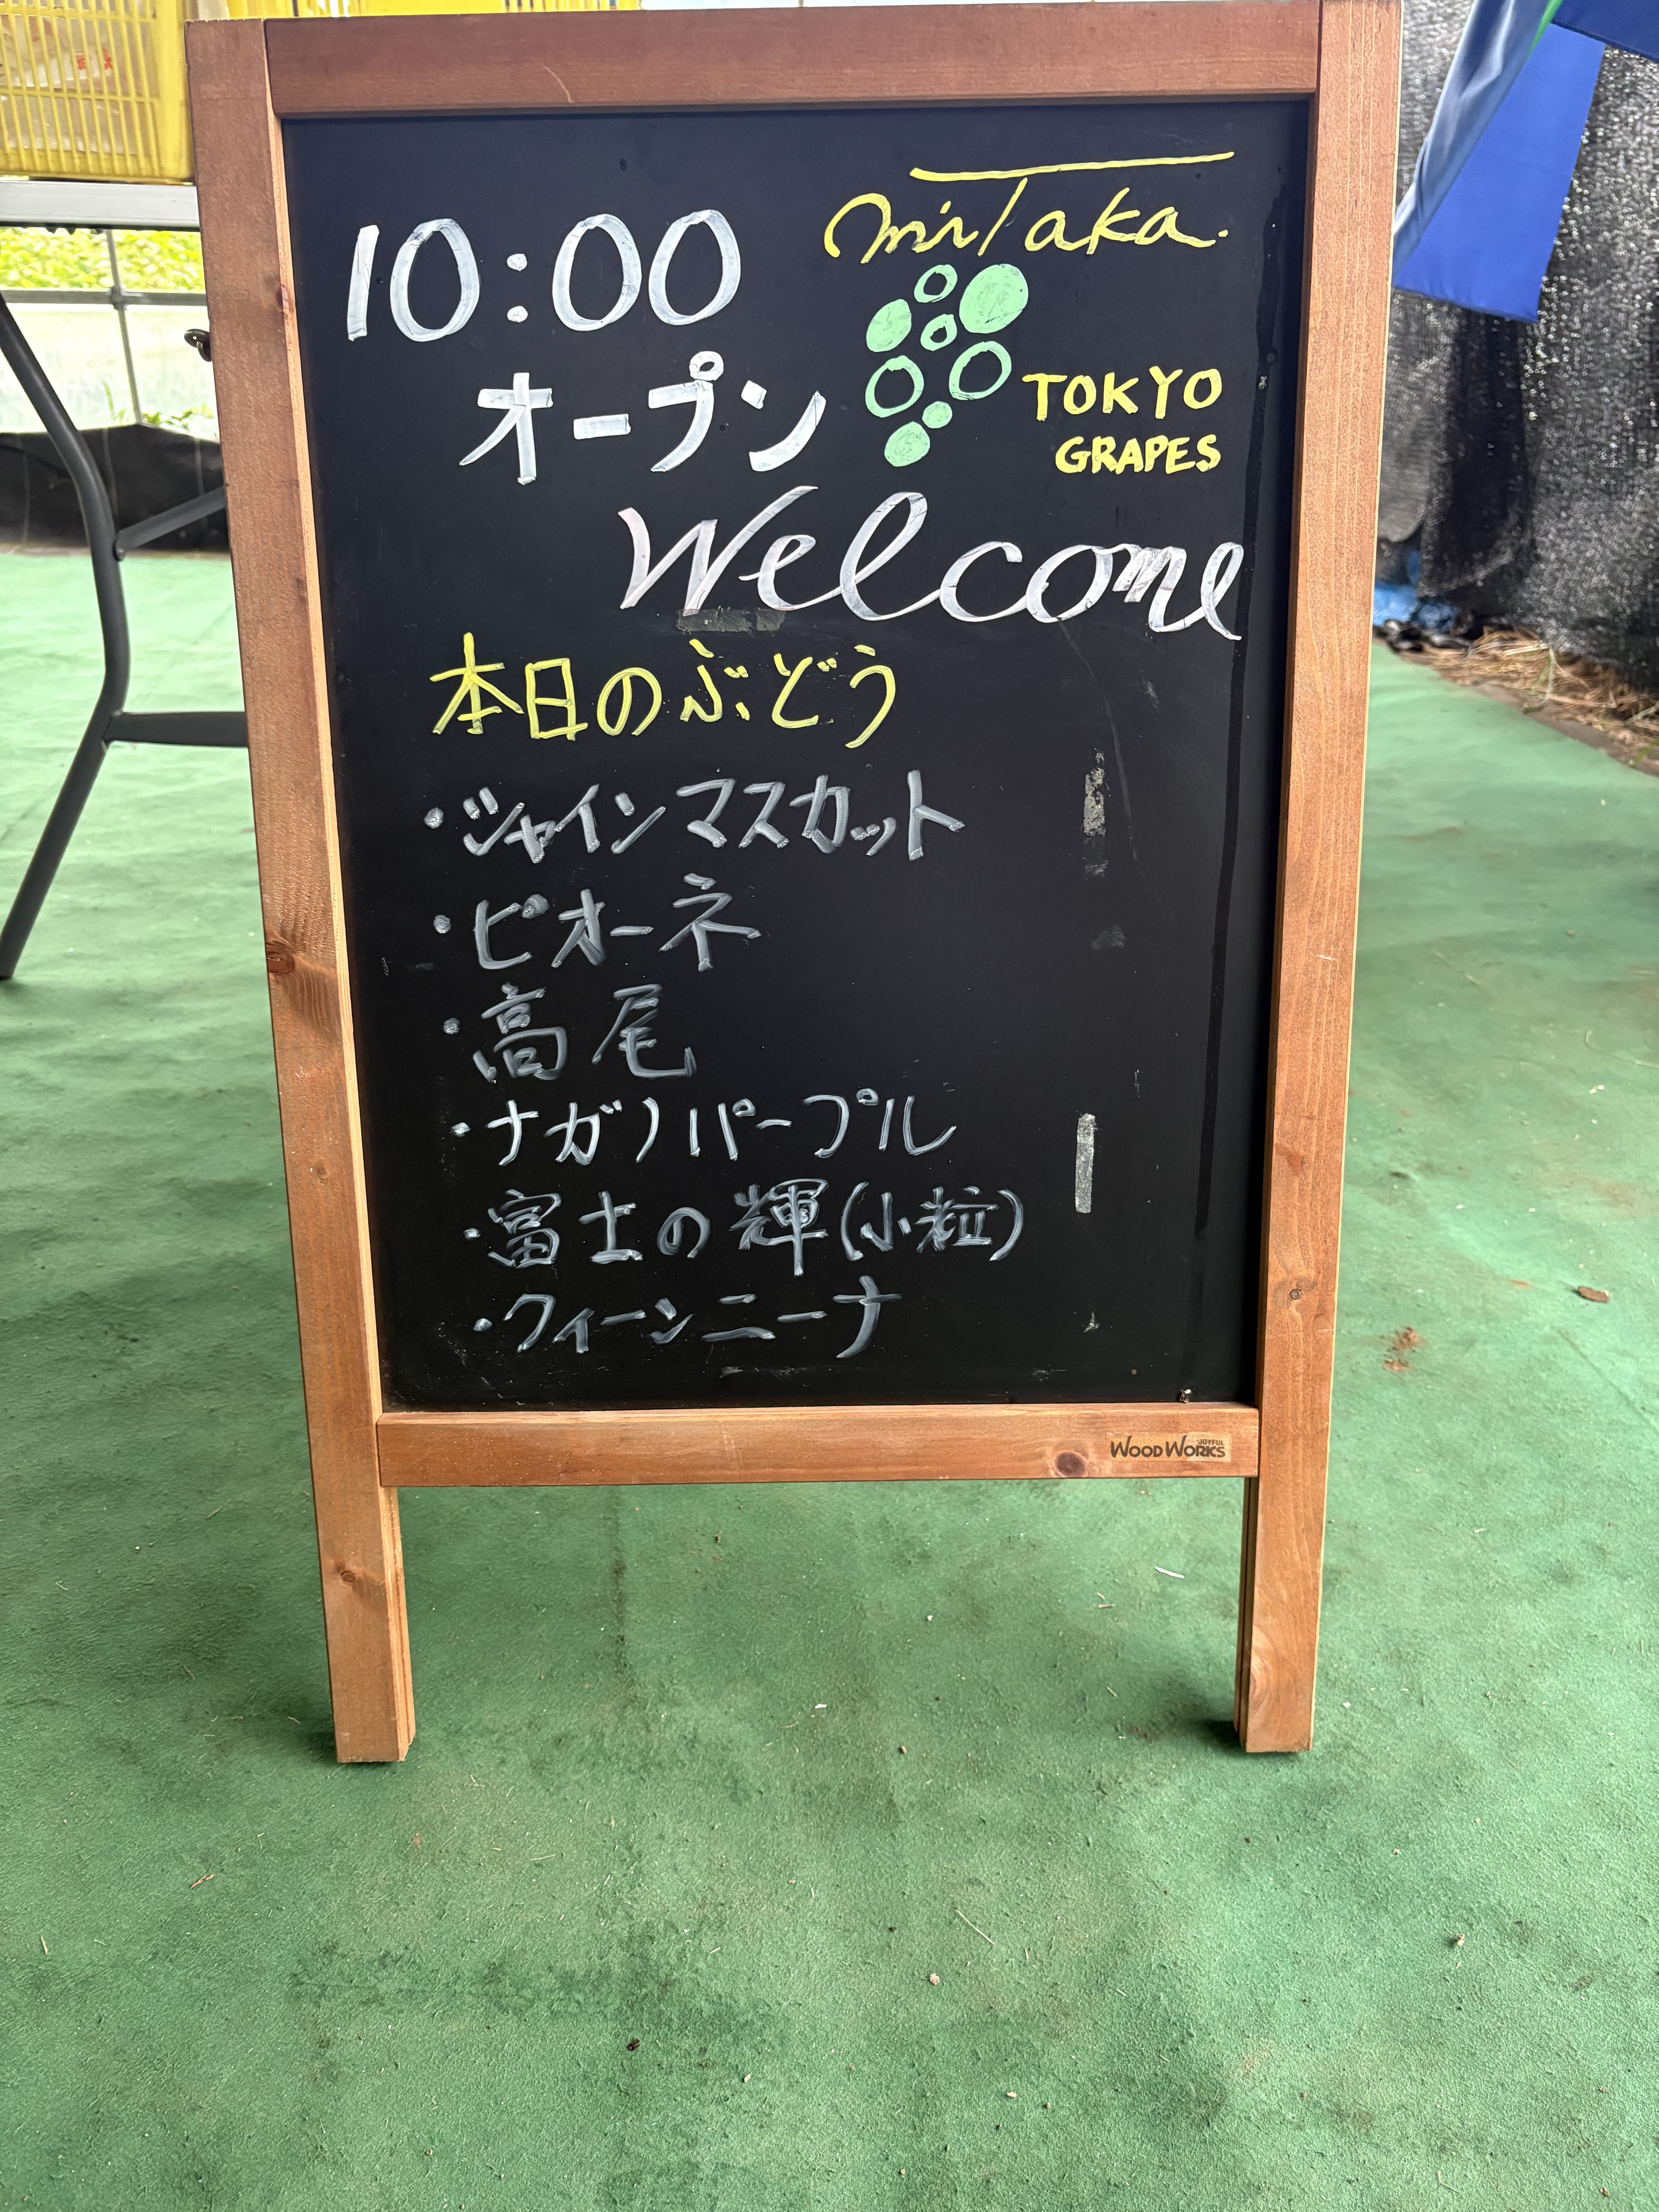 miTaka.
10:00
オープン
TOKYO
GRAPES
Welcome
本日のぶどう
・シャインマスカット
・ピオーネ
・高尾
・ナガノパープル
・富士の輝(小粒)
・クィーンニーナ
JOYFUL
WOODWORKS